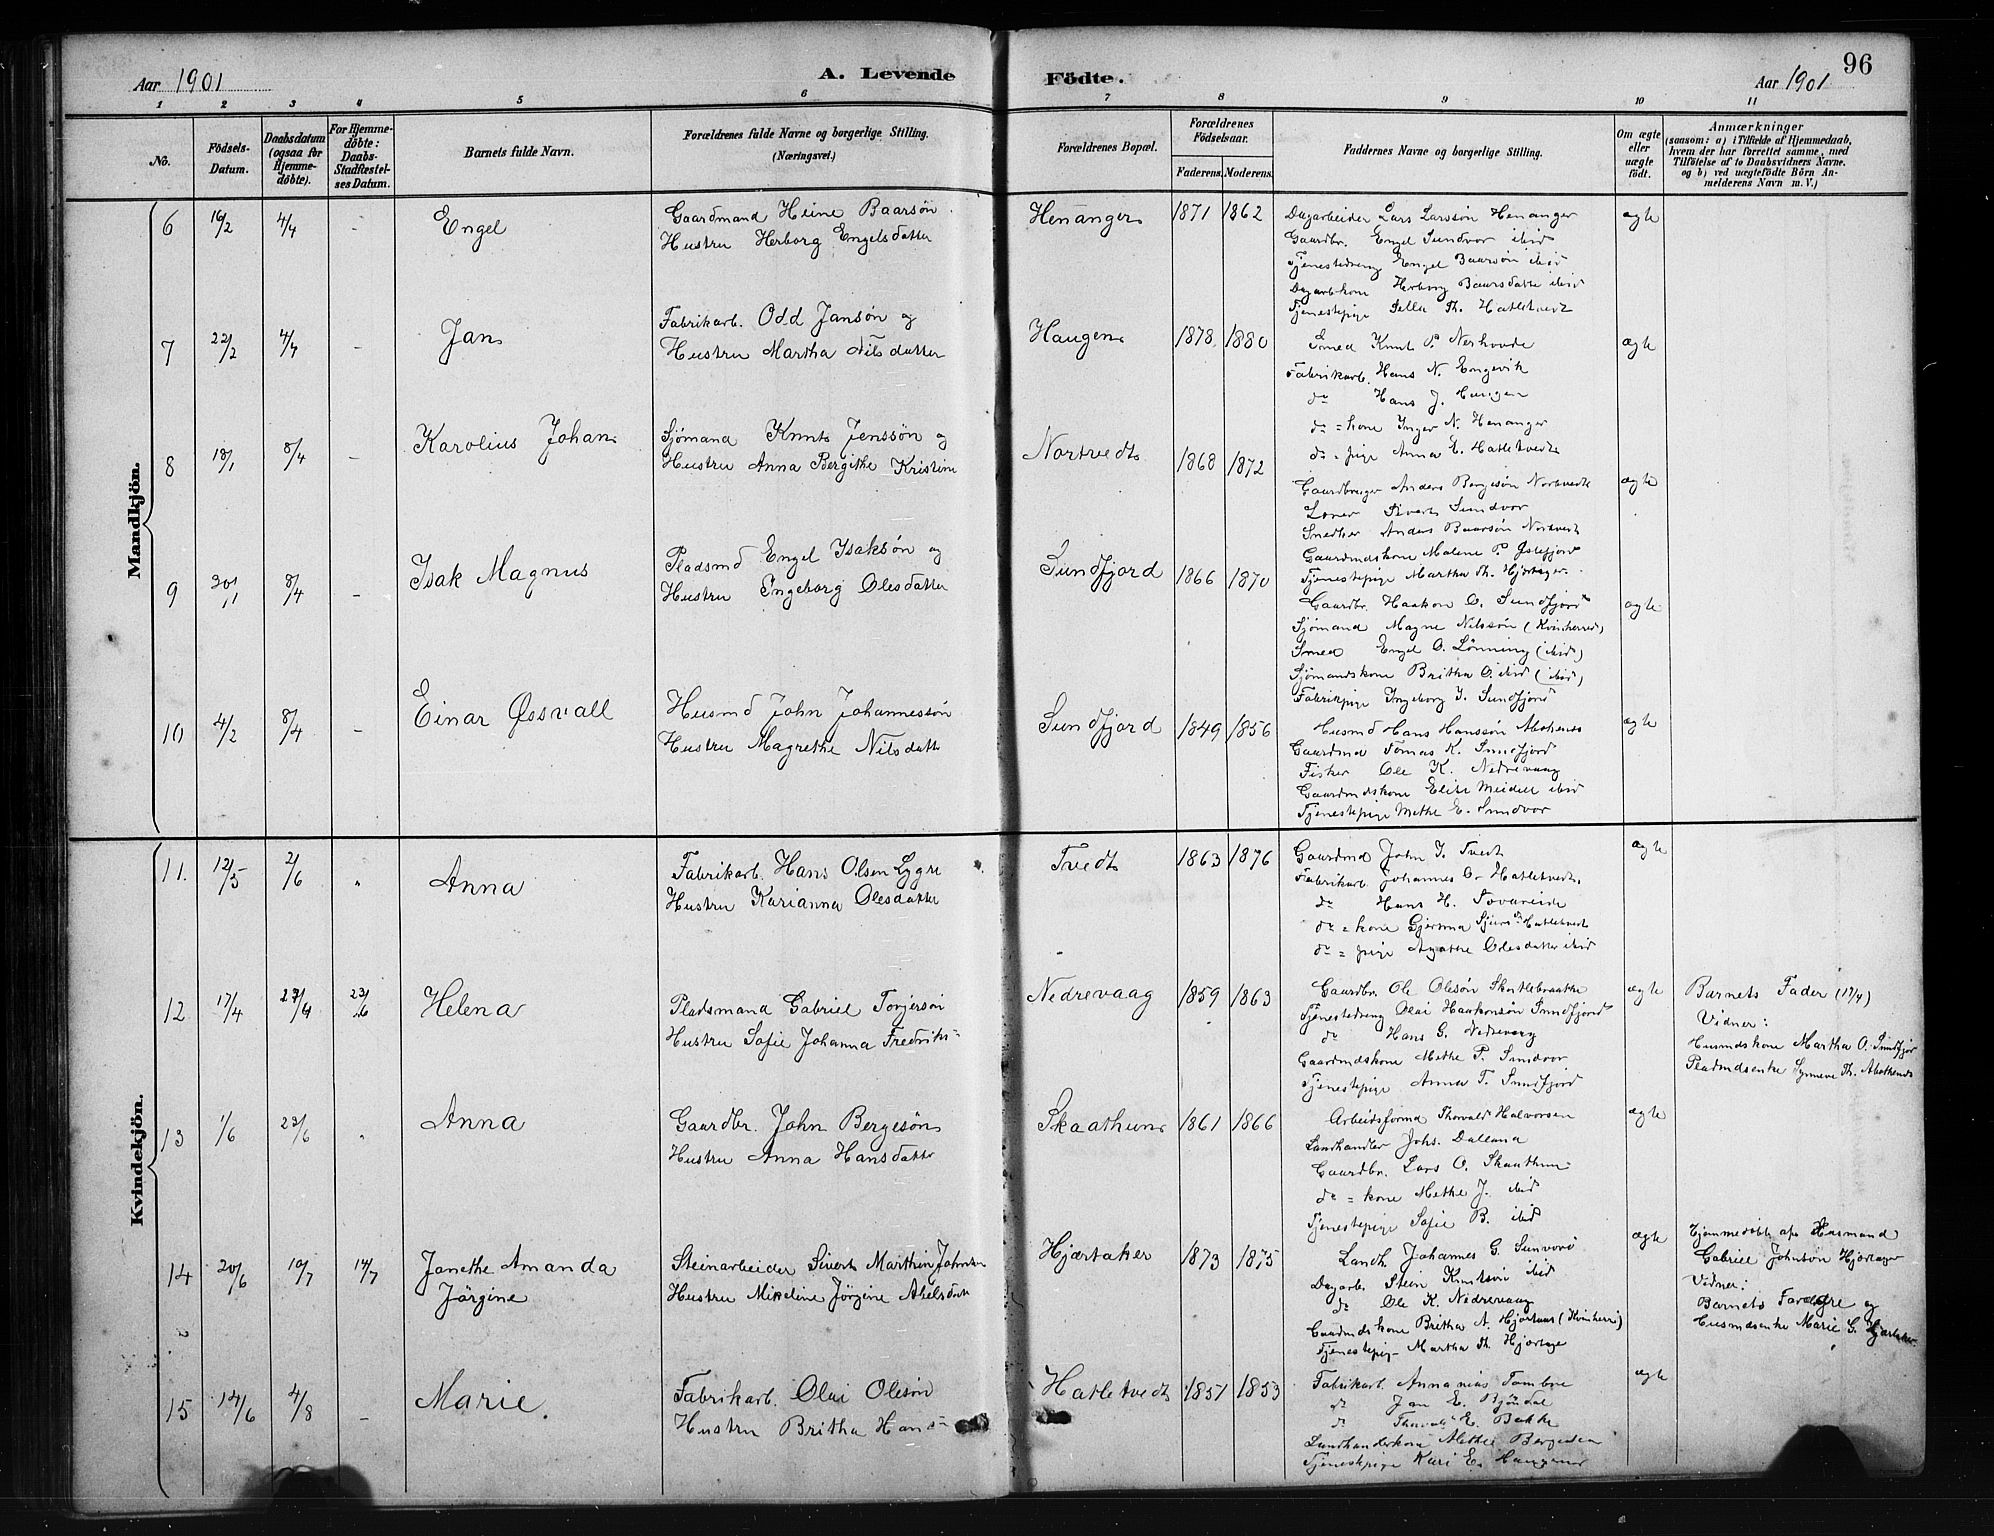 96
Aar 1901
A. Levende Födte.
Aar 1901
1 2 3 4 5 6 7 8 9 10 11
No.
Födsels-Datum.
Daabsdatum (ogsaa for Hjemme-döbte).
For Hjemme-döbte: Daabs-Stadfæstel-ses Datum.
Barnets fulde Navn.
Forældrenes fulde Navne og borgerlige Stilling.
(Næringsvei.)
Forældrenes Bopæl.
Forældrenes Födselsaar.
Faderens. Moderens.
Faddernes Navne og borgerlige Stilling.
Om ægte eller uægte födt.
Anmærkninger
(saasom: a) i Tilfælde af Hjemmedaab,
hvem der har forrettet samme, med
Tilföielse af to Daabsvidners Navne,
og b) ved uægtefödte Börn An-
melderens Navn m. V.)
Mandkjön.
6 16/2 4/4 - Engel
Gaardmand Heine Baarsøn
Hustru Herborg Engelsdatter
Henanger 1871 1862
Dagarbeider Lars Larssøn Henanger
Gaardbr. Engel Sundvor ibid
Tjenestedreng Engel Baarsøn ibid
Dagarbkone Herborg Baarsdatter ibid
Tjenestepige Sella Th. Hatletvedt
ægte
7 22/2 4/4 - Jan
Fabrikarb. Odd Jansøn og
Hustru Martha Nilsdatter
Haugen 1878 1880
Smed Knut P. Nerhovde
Fabrikarb. Hans N. Engevik
do Hans J. Haugen
do = kone Inger N. Henanger
do = pige Anna E. Hatletvedt
ægte
8 18/1 8/4 - Karolius Johan
Sjømand Knut Jenssøn og
Hustru Anna Bergithe Kristine
Nortvedt 1868 1872
Gaardbruger Anders Bergesøn Nortvedt
Sivert Sundvor
Anders Baarsøn Nortvedt
Gaardmdskone Malene P. Østefjord
Tjenestepige Martha Th. Hjortager
ægte
9 8/4 - Isak Magnus
Pladsmd Engel Isaksøn og
Hustru Ingeborg Olesdatter
Sundfjord 1866 1870
Gaardbr. Haakon O. Sundfjord
Sjømand Magne Nilssøn (Kvinherred)
Smed Engel O. Lønning (ibid)
Sjømandskone Britha O. ibid (ibid)
Fabrikpige Ingeborg I. Sundfjord
ægte
10 4/2 8/4 - Einar Øssvall
Husmd John Johannessøn
Hustru Magrethe Nilsdatter
Sundfjord 1849 1856
Husmd Hans Hanssøn
Gaardmd Tomas K. Sundfjord
Fisker Ole K. Nedrevaag
Gaardmdskone Elise Meidell ibid
Tjenestepige Methe E. Sundvor
ægte
Kvindekjön.
11. 12/5 2/6 " Anna
Fabrikarb. Hans Olsen Lygre
Hustru Karianna Olesdatter
Tvedt 1863 1876
Gaardmd John J. Tvedt
Fabrikarb Johannes O. Hatletvedt
do Hans H. Tovareide
do = kone Gjertina Sjurs dr Hatletvedt
do = pige Agathe Olesdatter ibid
ægte
12 17/4 27/4 23/6 Helena
Pladsmand Gabriel Torjersøn
Hustru Sofie Johanna Fredriks=
Nedrevaag 1859 1863
Gaardbr. Ole Olesøn
Tjenestedreng Olai Haakonsøn Sundfjord
do Hans G. Nedrevaag
Gaardmdskone Methe P. Sundvor
Tjenestepige Anna T. Sundfjord
ægte
Barnets Fader (17/4)
Vidner:
Husmdskone Martha O. Sundfjor
Pladsmdsenke Synneve Th.
13 1/6 23/6 " Anna
Gaardbr. John Bergesøn
Hustru Anna Hansdatter
Skaathun 1861 1866
Arbeidsformd Thorvald Halvorsen
Landhandler Johs. Dallama
Gaardbr. Lars O. Skaathun
do = kone Methe J. ibid
Tjenestepige Sofie B. ibid
ægte
14 20/6 10/7 14/7 Janethe Amanda
Jørgine
Steinarbeider Sivert Marthin Johnsen
Hustru Mikeline Jørgine Akselsdatt
Hjærtaker 1873 1875
Landh. Johannes G. Sunvor
Dagarb. Stein Knutsøn ibid
do Ole K. Nedrevaag
Gaardmdskone Britha A. (Kvinherr)
Tjenestepig- Martha Th. Hjortage
ægte
Hjemmedøbt af Husmand
Gabriel Johnsøn Hjortager
Vidner:
Barnets Forældre og
Husmdsenke Marie G. Hjærtaker
15 14/6 4/8 - Marie.
Fabrikarb. Olai Olesøn
Hustru Britha Hans=
Hatletvedt 1851 1853
Fabrikarb. Annanias Tombre
do Jan E. Bjøndal
do Thorvald E. Bakke
Landhandlerkone Alethe Bergesen
Tjenestepige Kari E.
ægte